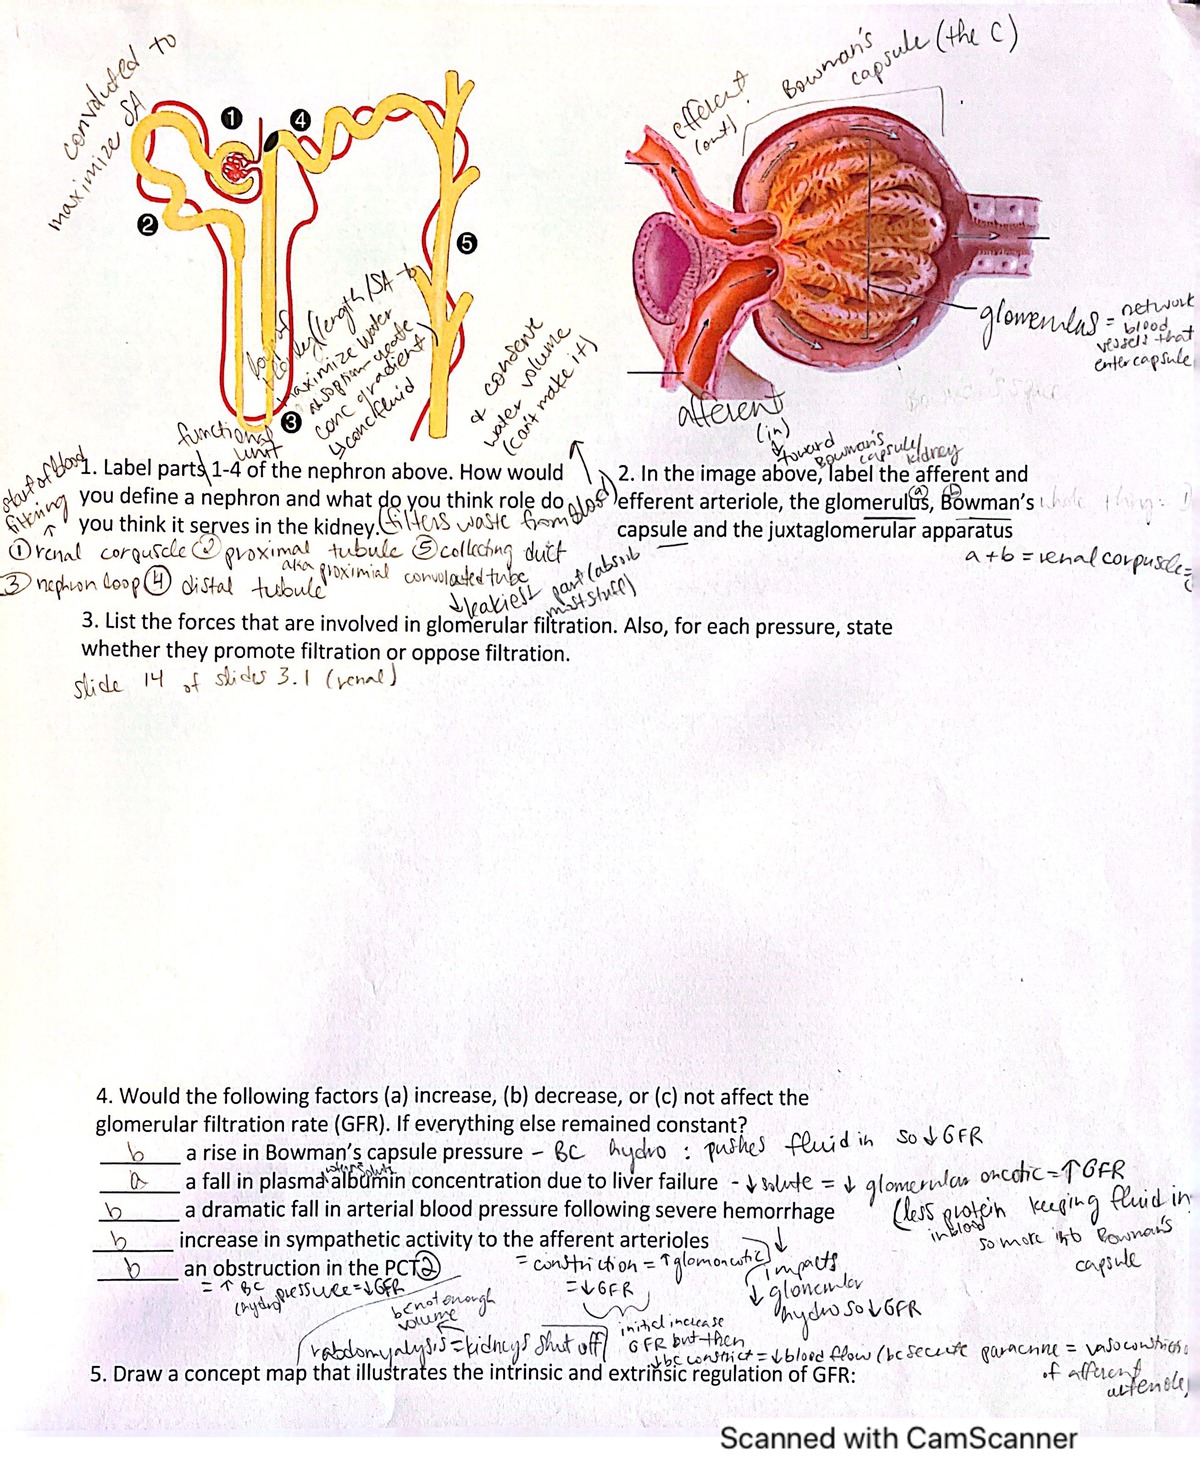 convoluted to
maximize SA
1
4
2
5
3
efferent
(out)
Bowman's
capsule (the C)
glomerulus = network
blood
vessels that
enter capsule
afferent
(in)
toward
Bowman's
capsule/
kidney
(length/SA to
maximize water
absorption create
conc gradient)
↳ conc fluid
& condense
water volume
(can't make it)
functional
unit
start of blood
filtering
1. Label parts 1-4 of the nephron above. How would
you define a nephron and what do you think role do
you think it serves in the kidney. (filters waste from blood)
① renal corpuscle ② proximal tubule ⑤ collecting duct
aka proximial convoluted tube
③ nephron loop ④ distal tubule
↓ leakiest part (absorb
most stuff)
2. In the image above, label the afferent and
efferent arteriole, the glomerulus, Bowman's
capsule and the juxtaglomerular apparatus
a b
whole thing:
a + b = renal corpuscle
3. List the forces that are involved in glomerular filtration. Also, for each pressure, state
whether they promote filtration or oppose filtration.
slide 14 of slides 3.1 (renal)
4. Would the following factors (a) increase, (b) decrease, or (c) not affect the
glomerular filtration rate (GFR). If everything else remained constant?
b a rise in Bowman's capsule pressure - BC hydro : pushes fluid in so ↓ GFR
a a fall in plasma albumin concentration due to liver failure - ↓ solute = ↓ glomerular oncotic = ↑ GFR
(less protein keeping fluid in
in blood
so more into Bowman's
capsule
b a dramatic fall in arterial blood pressure following severe hemorrhage
↓
impacts
↓ glomerular
hydro so ↓ GFR
b increase in sympathetic activity to the afferent arterioles
= constriction = ↑ glomoncotic
= ↓ GFR
b an obstruction in the PCT ②
= ↑ BC pressure = ↓ GFR
(hydro)
bc not enough
volume
rabdomyalysis = kidneys shut off
initial increase
GFR but then
↓ bc constrict = ↓ blood flow (bc secrete paracrine = vasoconstriction
of afferent
arteriole)
5. Draw a concept map that illustrates the intrinsic and extrinsic regulation of GFR:
Scanned with CamScanner